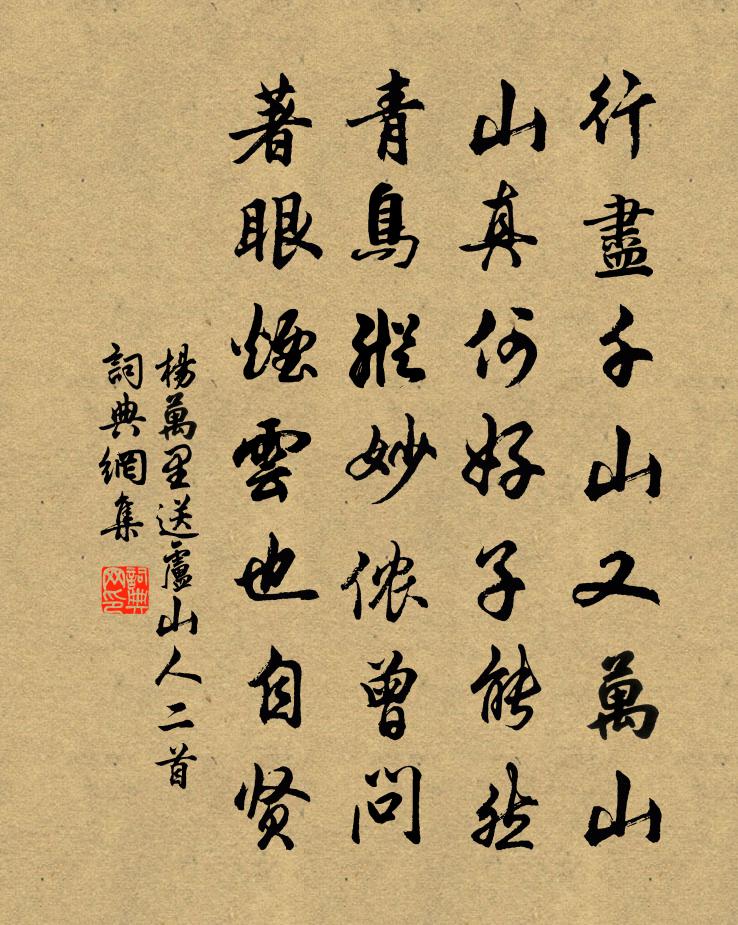 行盡千山又萬山
山真何好子能然
青鳥縱妙侬曾問
著眼煙雲也自贤
楊萬里送廬山人二首
詞典網集
詞典网印